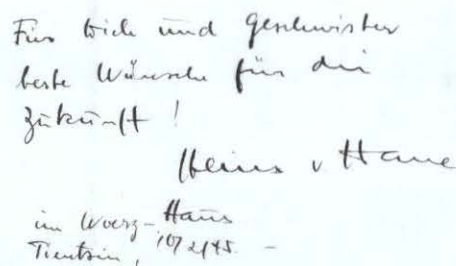 Für Dich und Geschwister
beste Wünsche für die
Zukunft!
Heinz v Haue
im Woerz-Haus
Tientsin, 10/2/45. -